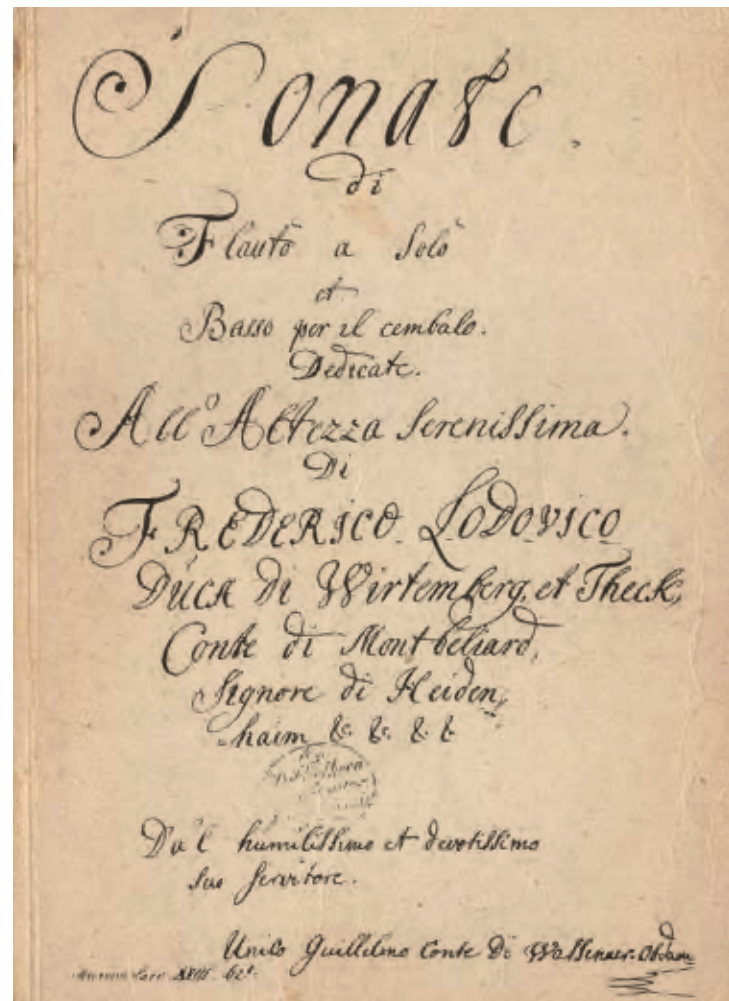 Sonate.
di
Flauto a Solo
et
Basso per il cembalo.
Dedicate.
All'Altezza Serenissima.
Di
FREDERICO LODOVICO
Duca di Wirtemberg et Theck,
Conte di Montbeliard,
Signore di Heiden,,
haim &c. &c. & &
Da'l humilissimo et devotissimo
suo servitore.
Unico Guillelmo Conte Di Wassenaer Obdam
XVIII